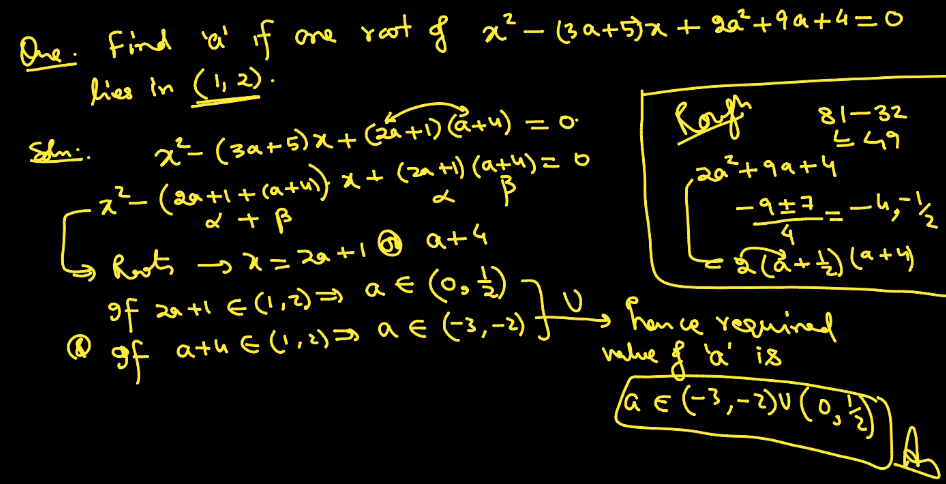 Que:. Find 'a' if one root of x² - (3a+5)x + 2a²+9a+4=0
lies in (1, 2).
Soln:. x² - (3a+5)x + (2a+1)(a+4) = 0.
x² - (2a+1+(a+4))x + (2a+1)(a+4) = 0
α + β α β
Roots → x = 2a+1 or a+4
If 2a+1 ∈ (1,2) ⇒ a ∈ (0, 1/2)
or If a+4 ∈ (1,2) ⇒ a ∈ (-3,-2)
∪ → hence required
value of 'a' is
a ∈ (-3,-2) ∪ (0, 1/2)
Rough
81-32
= 49
2a²+9a+4
(-9±7)/4 = -4, -1/2
= 2(a+1/2)(a+4)